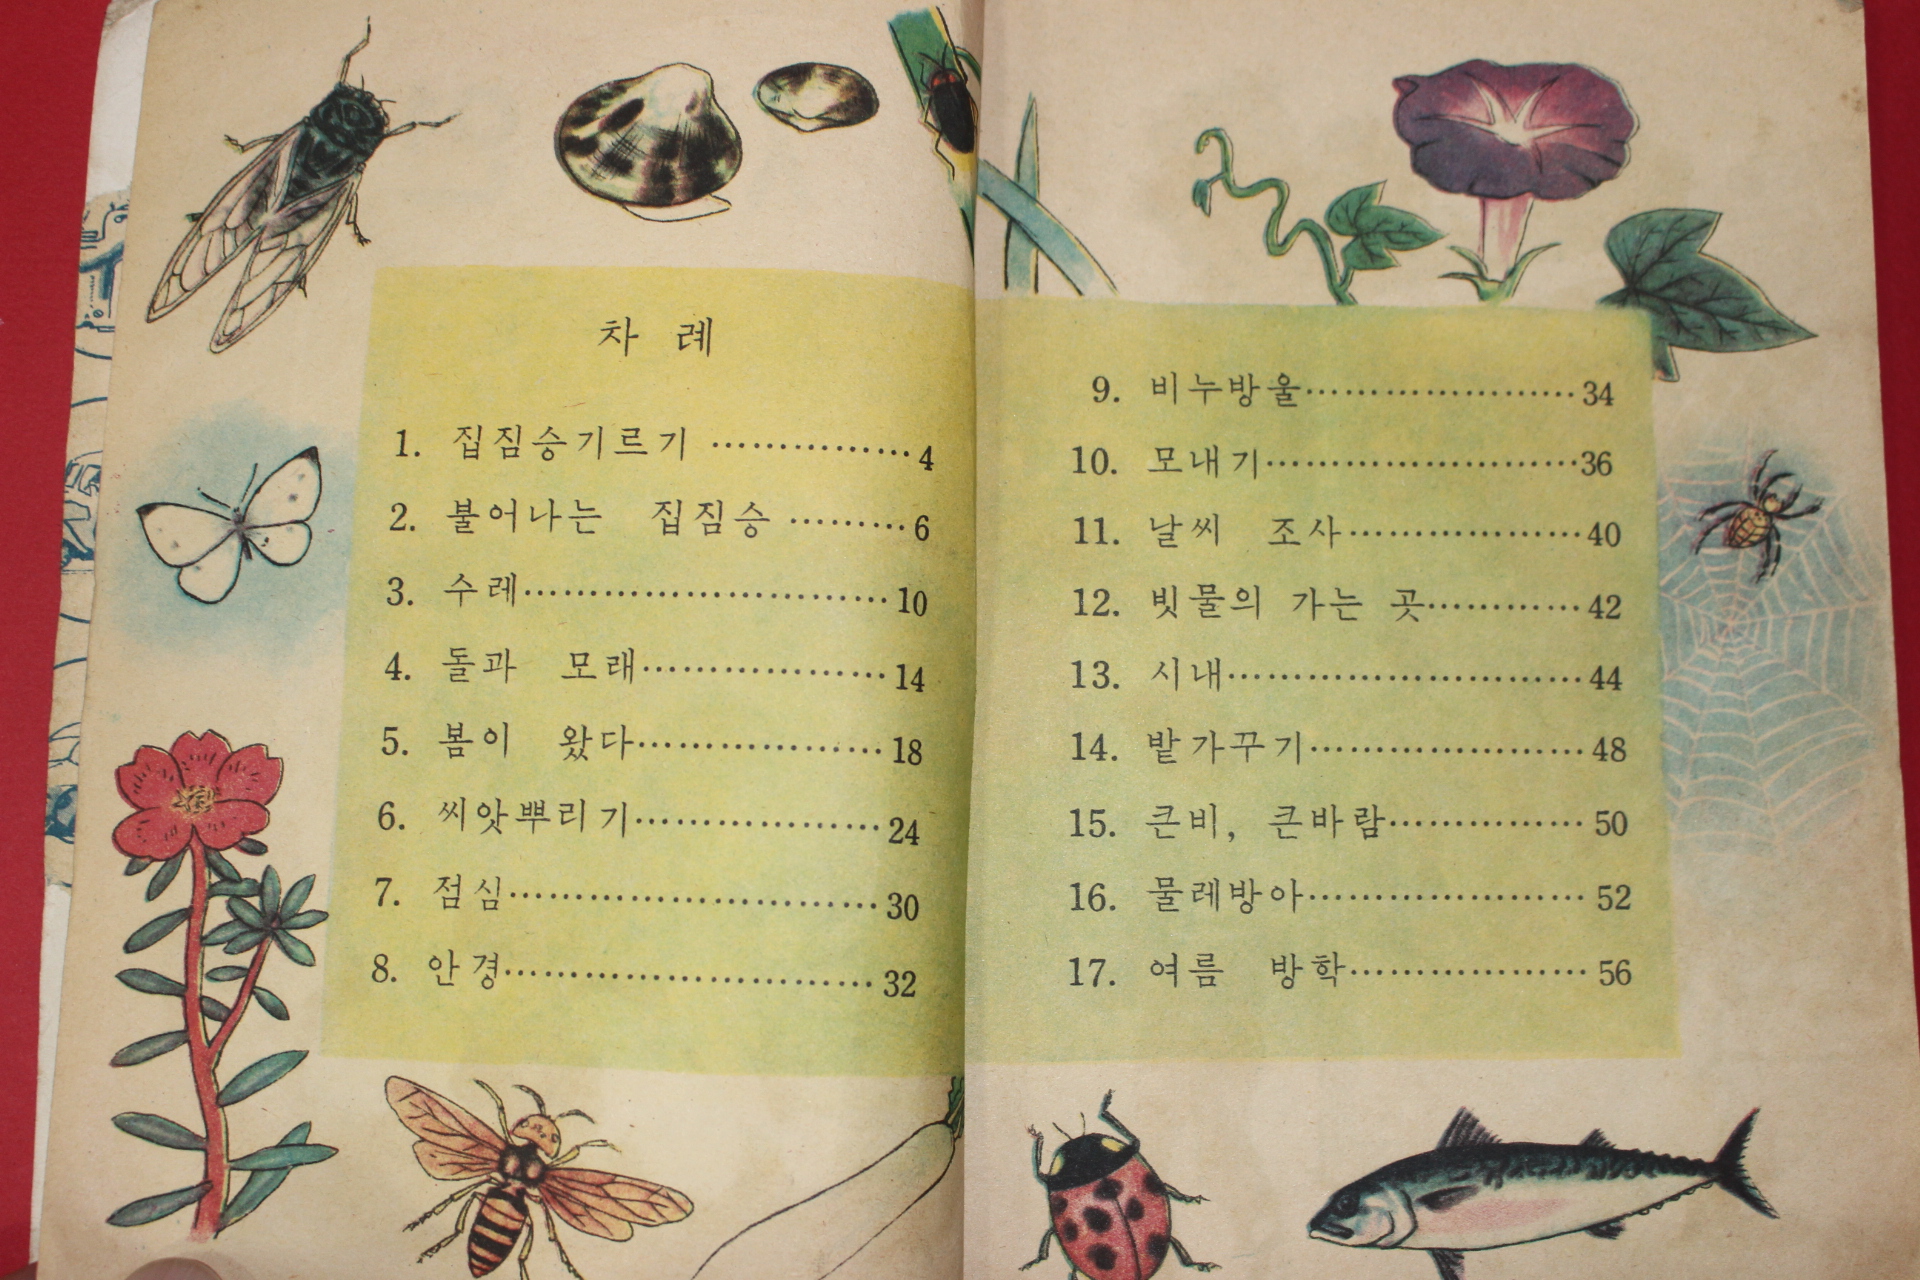 차 례
1. 집짐승기르기 ················ 4
2. 불어나는 집짐승 ········· 6
3. 수레···························· 10
4. 돌과 모래··················· 14
5. 봄이 왔다··················· 18
6. 씨앗뿌리기··················· 24
7. 점심···························· 30
8. 안경···························· 32
9. 비누방울····················· 34
10. 모내기························ 36
11. 날씨 조사·················· 40
12. 빗물의 가는 곳············ 42
13. 시내··························· 44
14. 밭가꾸기····················· 48
15. 큰비, 큰바람··············· 50
16. 물레방아····················· 52
17. 여름 방학·················· 56